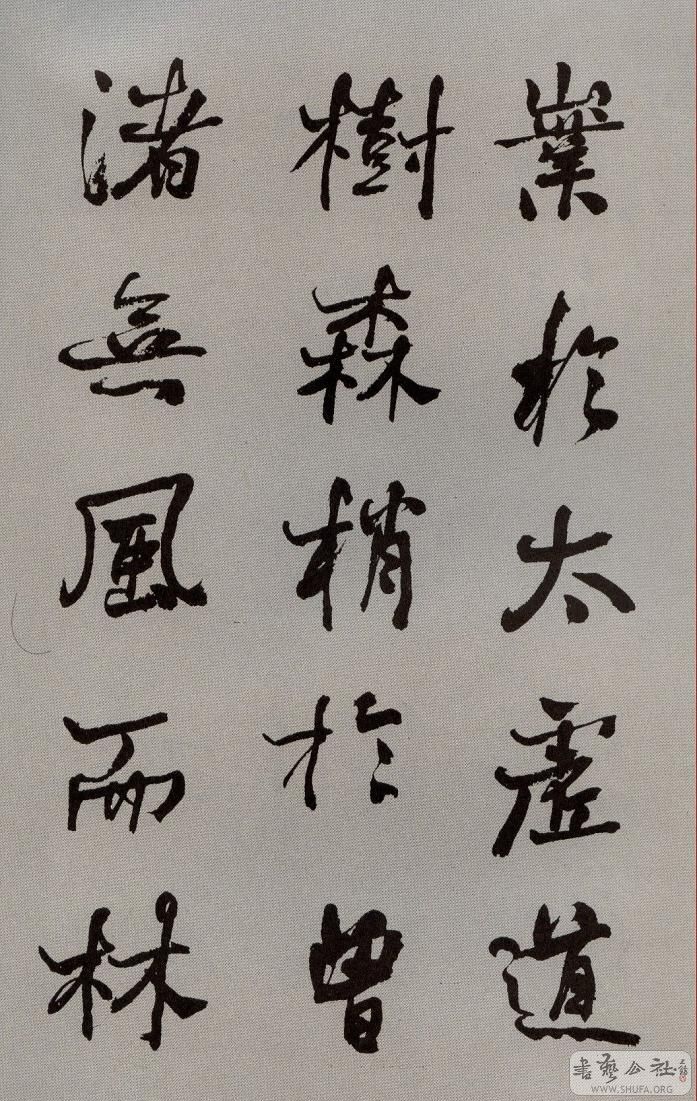 業於太虛道
樹森梢於曾
渚無風而林
書藝公社
WWW.SHUFA.ORG